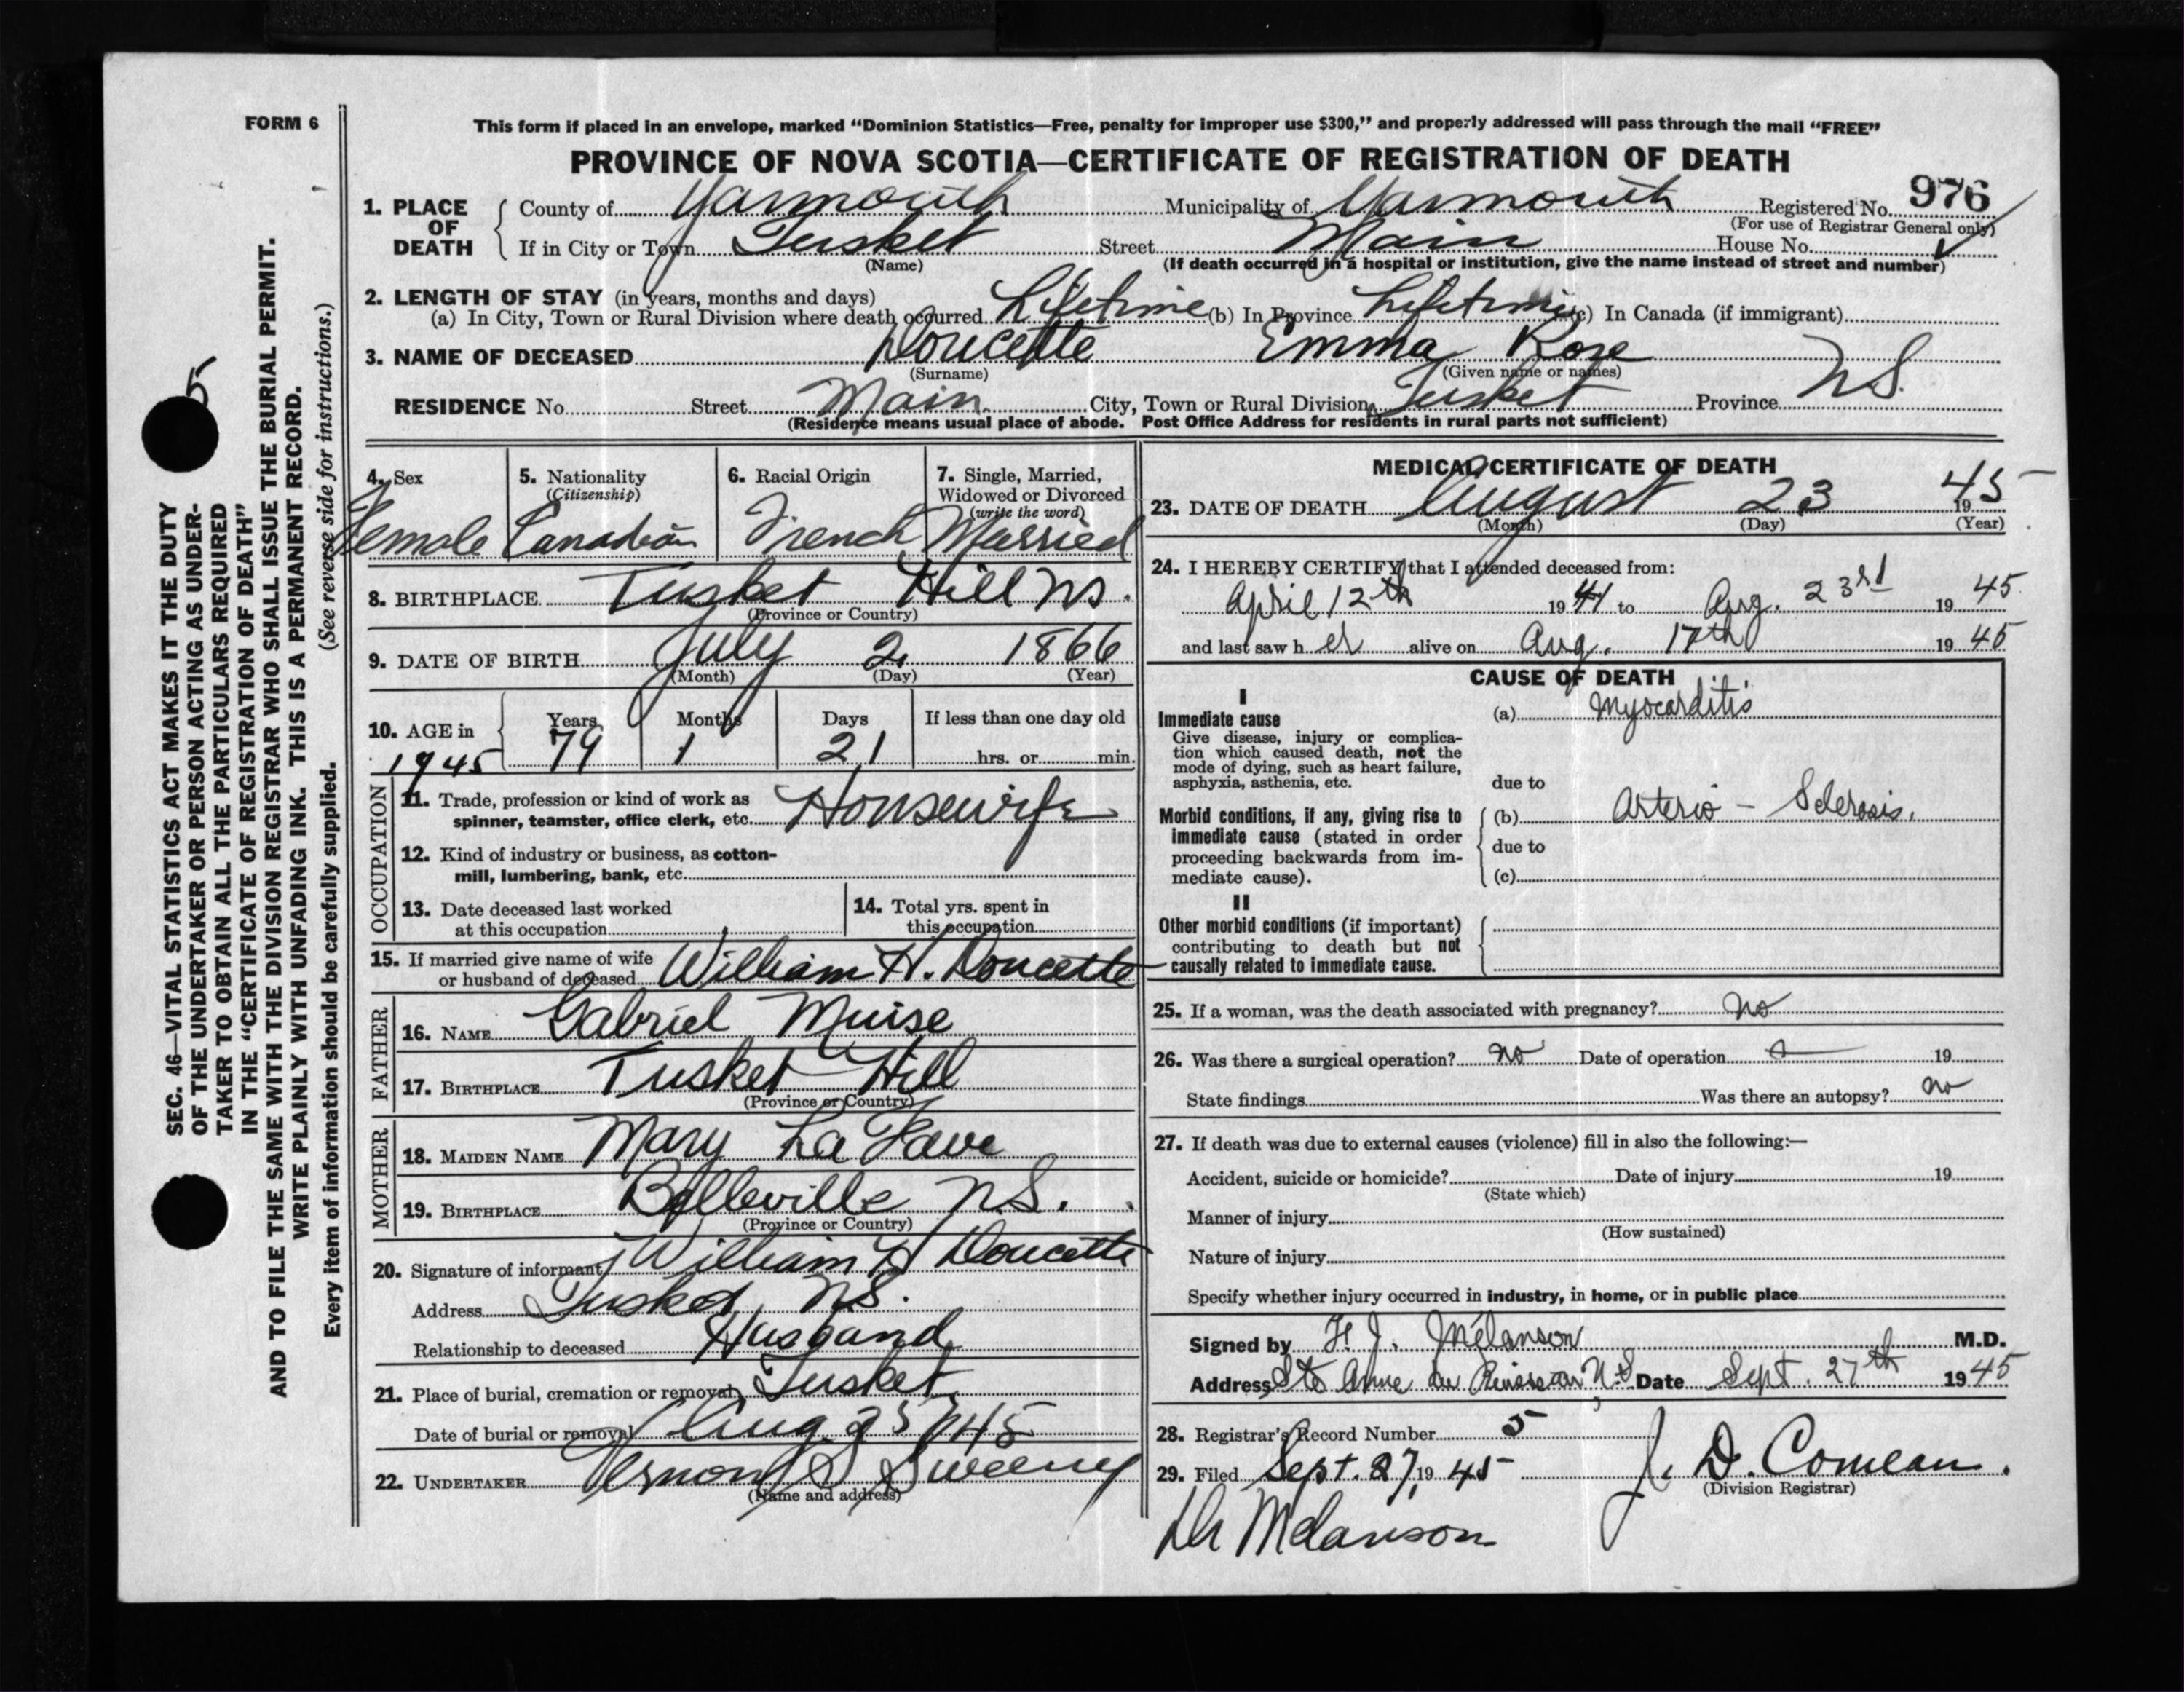 FORM 6
This form if placed in an envelope, marked “Dominion Statistics—Free, penalty for improper use $300,” and properly addressed will pass through the mail “FREE”
PROVINCE OF NOVA SCOTIA—CERTIFICATE OF REGISTRATION OF DEATH
976
1. PLACE OF DEATH
County of Yarmouth Municipality of Yarmouth Registered No.
(For use of Registrar General only)
If in City or Town Tusket Street Main House No.
(Name) (If death occurred in a hospital or institution, give the name instead of street and number)
2. LENGTH OF STAY (in years, months and days)
(a) In City, Town or Rural Division where death occurred Lifetime (b) In Province Lifetime (c) In Canada (if immigrant)
3. NAME OF DECEASED Doucette Emma Rose
(Surname) (Given name or names)
RESIDENCE No. Street Main City, Town or Rural Division Tusket Province N.S.
(Residence means usual place of abode. Post Office Address for residents in rural parts not sufficient)
4. Sex
Female
5. Nationality
(Citizenship)
Canadian
6. Racial Origin
French
7. Single, Married,
Widowed or Divorced
(write the word)
Married
8. BIRTHPLACE Tusket Hill N.S.
(Province or Country)
9. DATE OF BIRTH July 2 1866
(Month) (Day) (Year)
10. AGE in 1945
Years Months Days If less than one day old
79 1 21 hrs. or min.
OCCUPATION
11. Trade, profession or kind of work as
spinner, teamster, office clerk, etc. Housewife
12. Kind of industry or business, as cotton-
mill, lumbering, bank, etc.
13. Date deceased last worked
at this occupation
14. Total yrs. spent in
this occupation
15. If married give name of wife
or husband of deceased William H. Doucette
FATHER
16. NAME Gabriel Muise
17. BIRTHPLACE Tusket Hill
(Province or Country)
MOTHER
18. MAIDEN NAME Mary La Fave
19. BIRTHPLACE Belleville N.S.
(Province or Country)
20. Signature of informant William H Doucette
Address Tusket, N.S.
Relationship to deceased Husband
21. Place of burial, cremation or removal Tusket
Date of burial or removal Aug. 25
22. UNDERTAKER Vernon S Sweeny
(Name and address)
MEDICAL CERTIFICATE OF DEATH
23. DATE OF DEATH August 23 1945
(Month) (Day) (Year)
24. I HEREBY CERTIFY that I attended deceased from:
April 12th 1941 to Aug. 23rd 1945
and last saw her alive on Aug. 17th 1945
CAUSE OF DEATH
I
Immediate cause
Give disease, injury or complica-
tion which caused death, not the
mode of dying, such as heart failure,
asphyxia, asthenia, etc.
(a) Myocarditis
due to
Morbid conditions, if any, giving rise to
immediate cause (stated in order
proceeding backwards from im-
mediate cause).
(b) Arterio - Sclerosis.
due to
(c)
II
Other morbid conditions (if important)
contributing to death but not
causally related to immediate cause.
25. If a woman, was the death associated with pregnancy? no
26. Was there a surgical operation? no Date of operation 19
State findings Was there an autopsy? no
27. If death was due to external causes (violence) fill in also the following:—
Accident, suicide or homicide? Date of injury 19
(State which)
Manner of injury
(How sustained)
Nature of injury
Specify whether injury occurred in industry, in home, or in public place
Signed by F. J. Mélanson M.D.
Address Ste Anne du Ruisseau N.S Date Sept. 27th 1945
28. Registrar's Record Number 5
29. Filed Sept. 27, 1945 J. D. Comeau.
(Division Registrar)
Dr Melanson
5
SEC. 46—VITAL STATISTICS ACT MAKES IT THE DUTY
OF THE UNDERTAKER OR PERSON ACTING AS UNDER-
TAKER TO OBTAIN ALL THE PARTICULARS REQUIRED
IN THE “CERTIFICATE OF REGISTRATION OF DEATH”
AND TO FILE THE SAME WITH THE DIVISION REGISTRAR WHO SHALL ISSUE THE BURIAL PERMIT.
WRITE PLAINLY WITH UNFADING INK. THIS IS A PERMANENT RECORD.
(See reverse side for instructions.)
Every item of information should be carefully supplied.